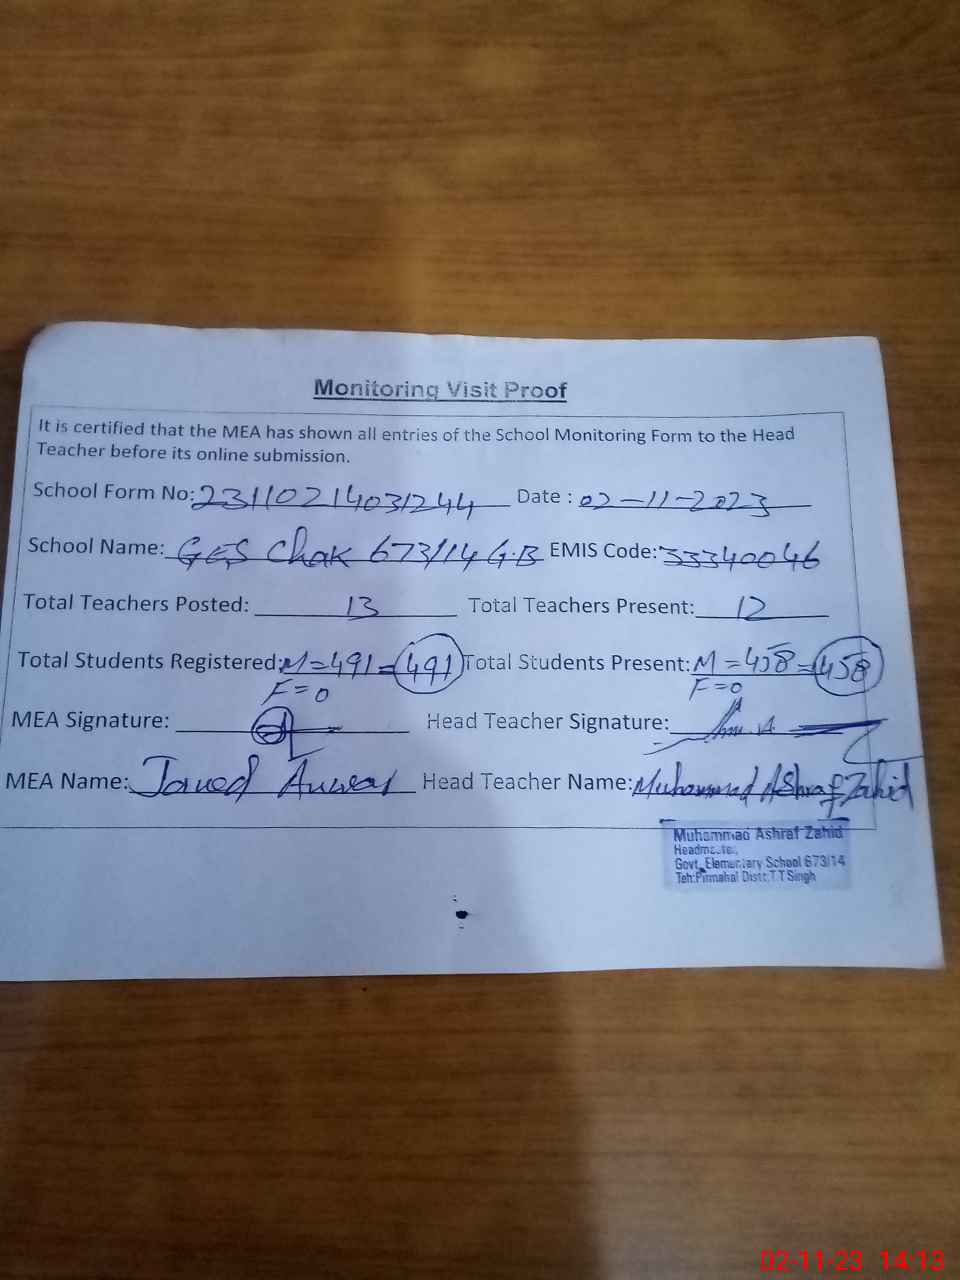 Monitoring Visit Proof
It is certified that the MEA has shown all entries of the School Monitoring Form to the Head
Teacher before its online submission.
School Form No: 23110214031244 Date : 02-11-2023
School Name: GES Chak 673/14 G.B EMIS Code: 33340046
Total Teachers Posted: 13 Total Teachers Present: 12
Total Students Registered: M=491=491 Total Students Present: M=458=458
F=0 F=0
MEA Signature: Head Teacher Signature:
MEA Name: Javed Anwar Head Teacher Name: Muhammad Ashraf Zahid
Muhammad Ashraf Zahid
Headmaster,
Govt. Elementary School 673/14
Teh:Pirmahal Distt:T.T Singh
02-11-23 14:13